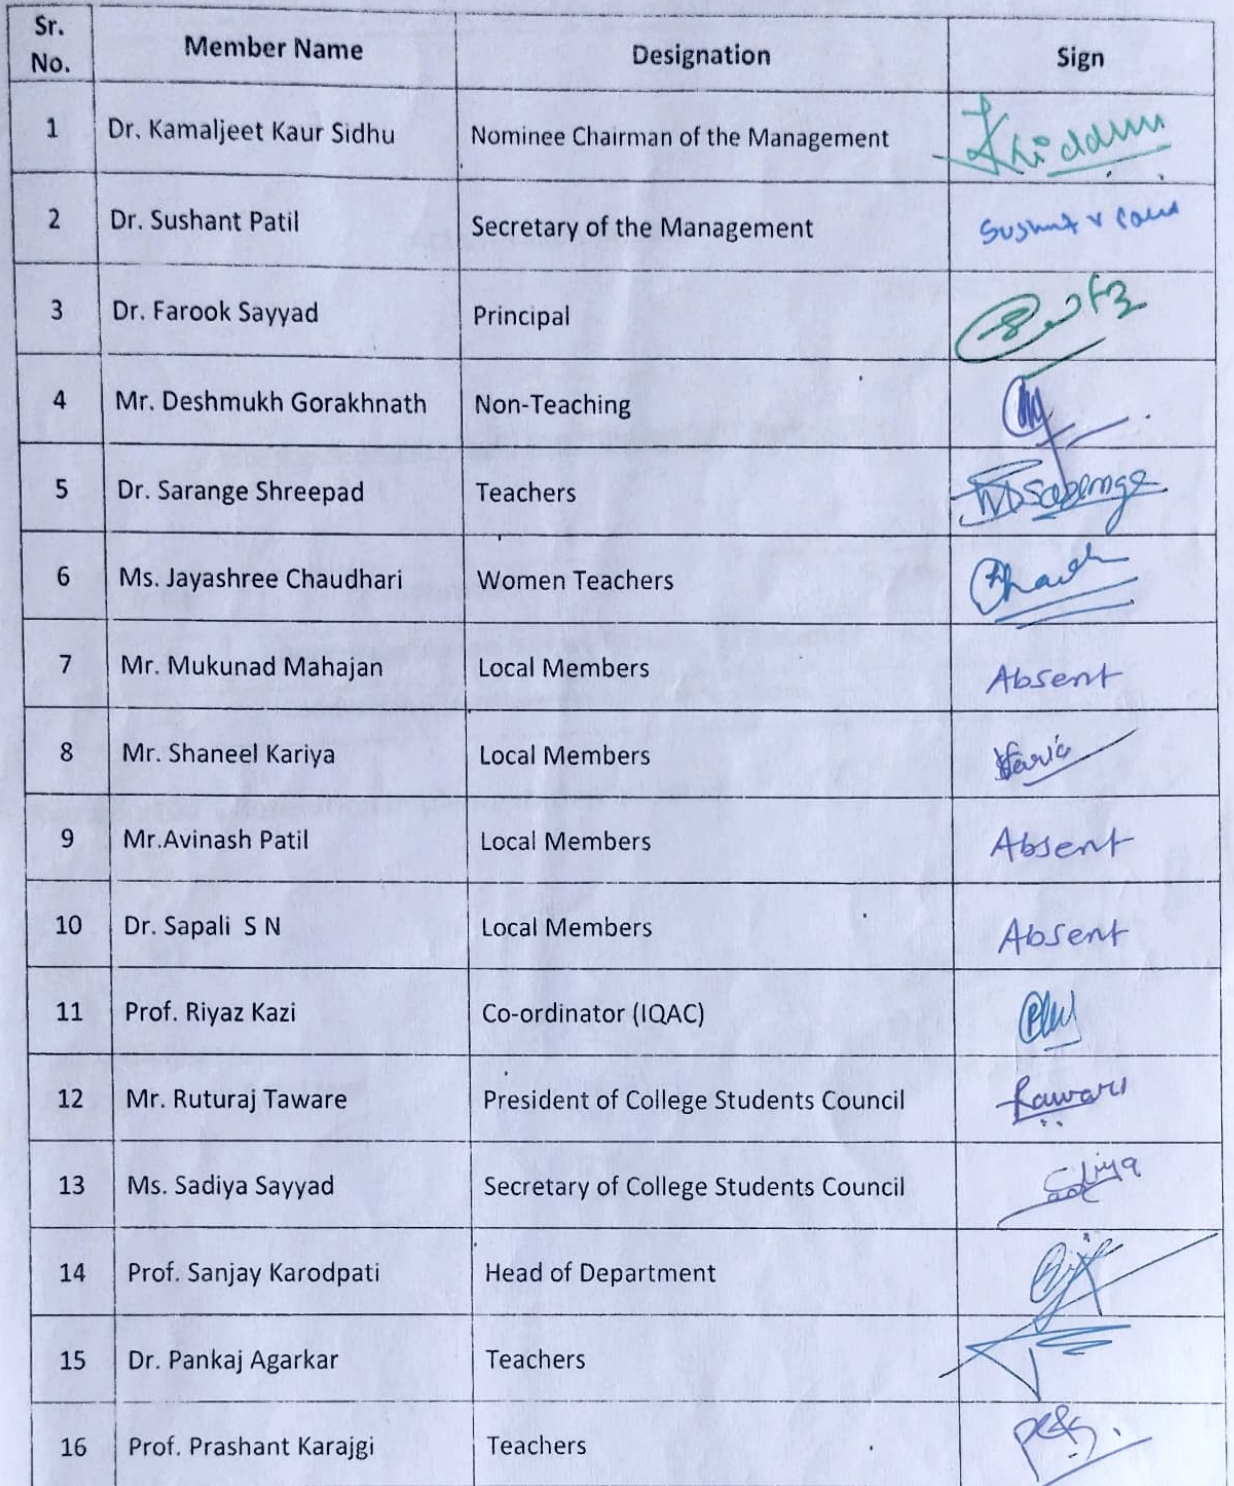 Sr. No. Member Name Designation Sign
1 Dr. Kamaljeet Kaur Sidhu Nominee Chairman of the Management
2 Dr. Sushant Patil Secretary of the Management
3 Dr. Farook Sayyad Principal
4 Mr. Deshmukh Gorakhnath Non-Teaching
5 Dr. Sarange Shreepad Teachers
6 Ms. Jayashree Chaudhari Women Teachers
7 Mr. Mukunad Mahajan Local Members Absent
8 Mr. Shaneel Kariya Local Members
9 Mr.Avinash Patil Local Members Absent
10 Dr. Sapali S N Local Members Absent
11 Prof. Riyaz Kazi Co-ordinator (IQAC)
12 Mr. Ruturaj Taware President of College Students Council
13 Ms. Sadiya Sayyad Secretary of College Students Council
14 Prof. Sanjay Karodpati Head of Department
15 Dr. Pankaj Agarkar Teachers
16 Prof. Prashant Karajgi Teachers